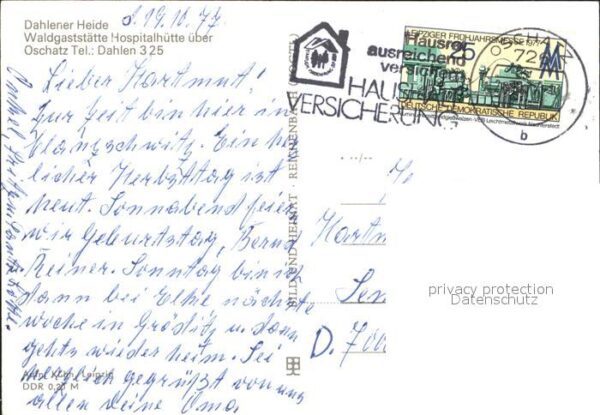 Dahlener Heide
Waldgaststätte Hospitalhütte über
Oschatz Tel.: Dahlen 325
d. 19.10.77
Lieber Hartmut!
Zur Zeit bin hier in
Ein
licher Herbsttag ist
heut. Sonnabend feiern
wir Geburtstag, Bernd
Reiner. Sonntag bin ich
dann bei Elke nächste
woche in Gröditz u. dann
gehts wieder heim. Sei
herzlich gegrüßt von uns
allen deine Oma.
DDR 0,25 M
BILD UND HEIMAT · REICHENBACH
Hausrat
ausreichend
versichern
HAUSHALT
VERSICHERUNG
LEIPZIGER FRÜHJAHRSMESSE 1977
25
DEUTSCHE DEMOKRATISCHE REPUBLIK
72
b
Hartm
D. 700
privacy protection
Datenschutz